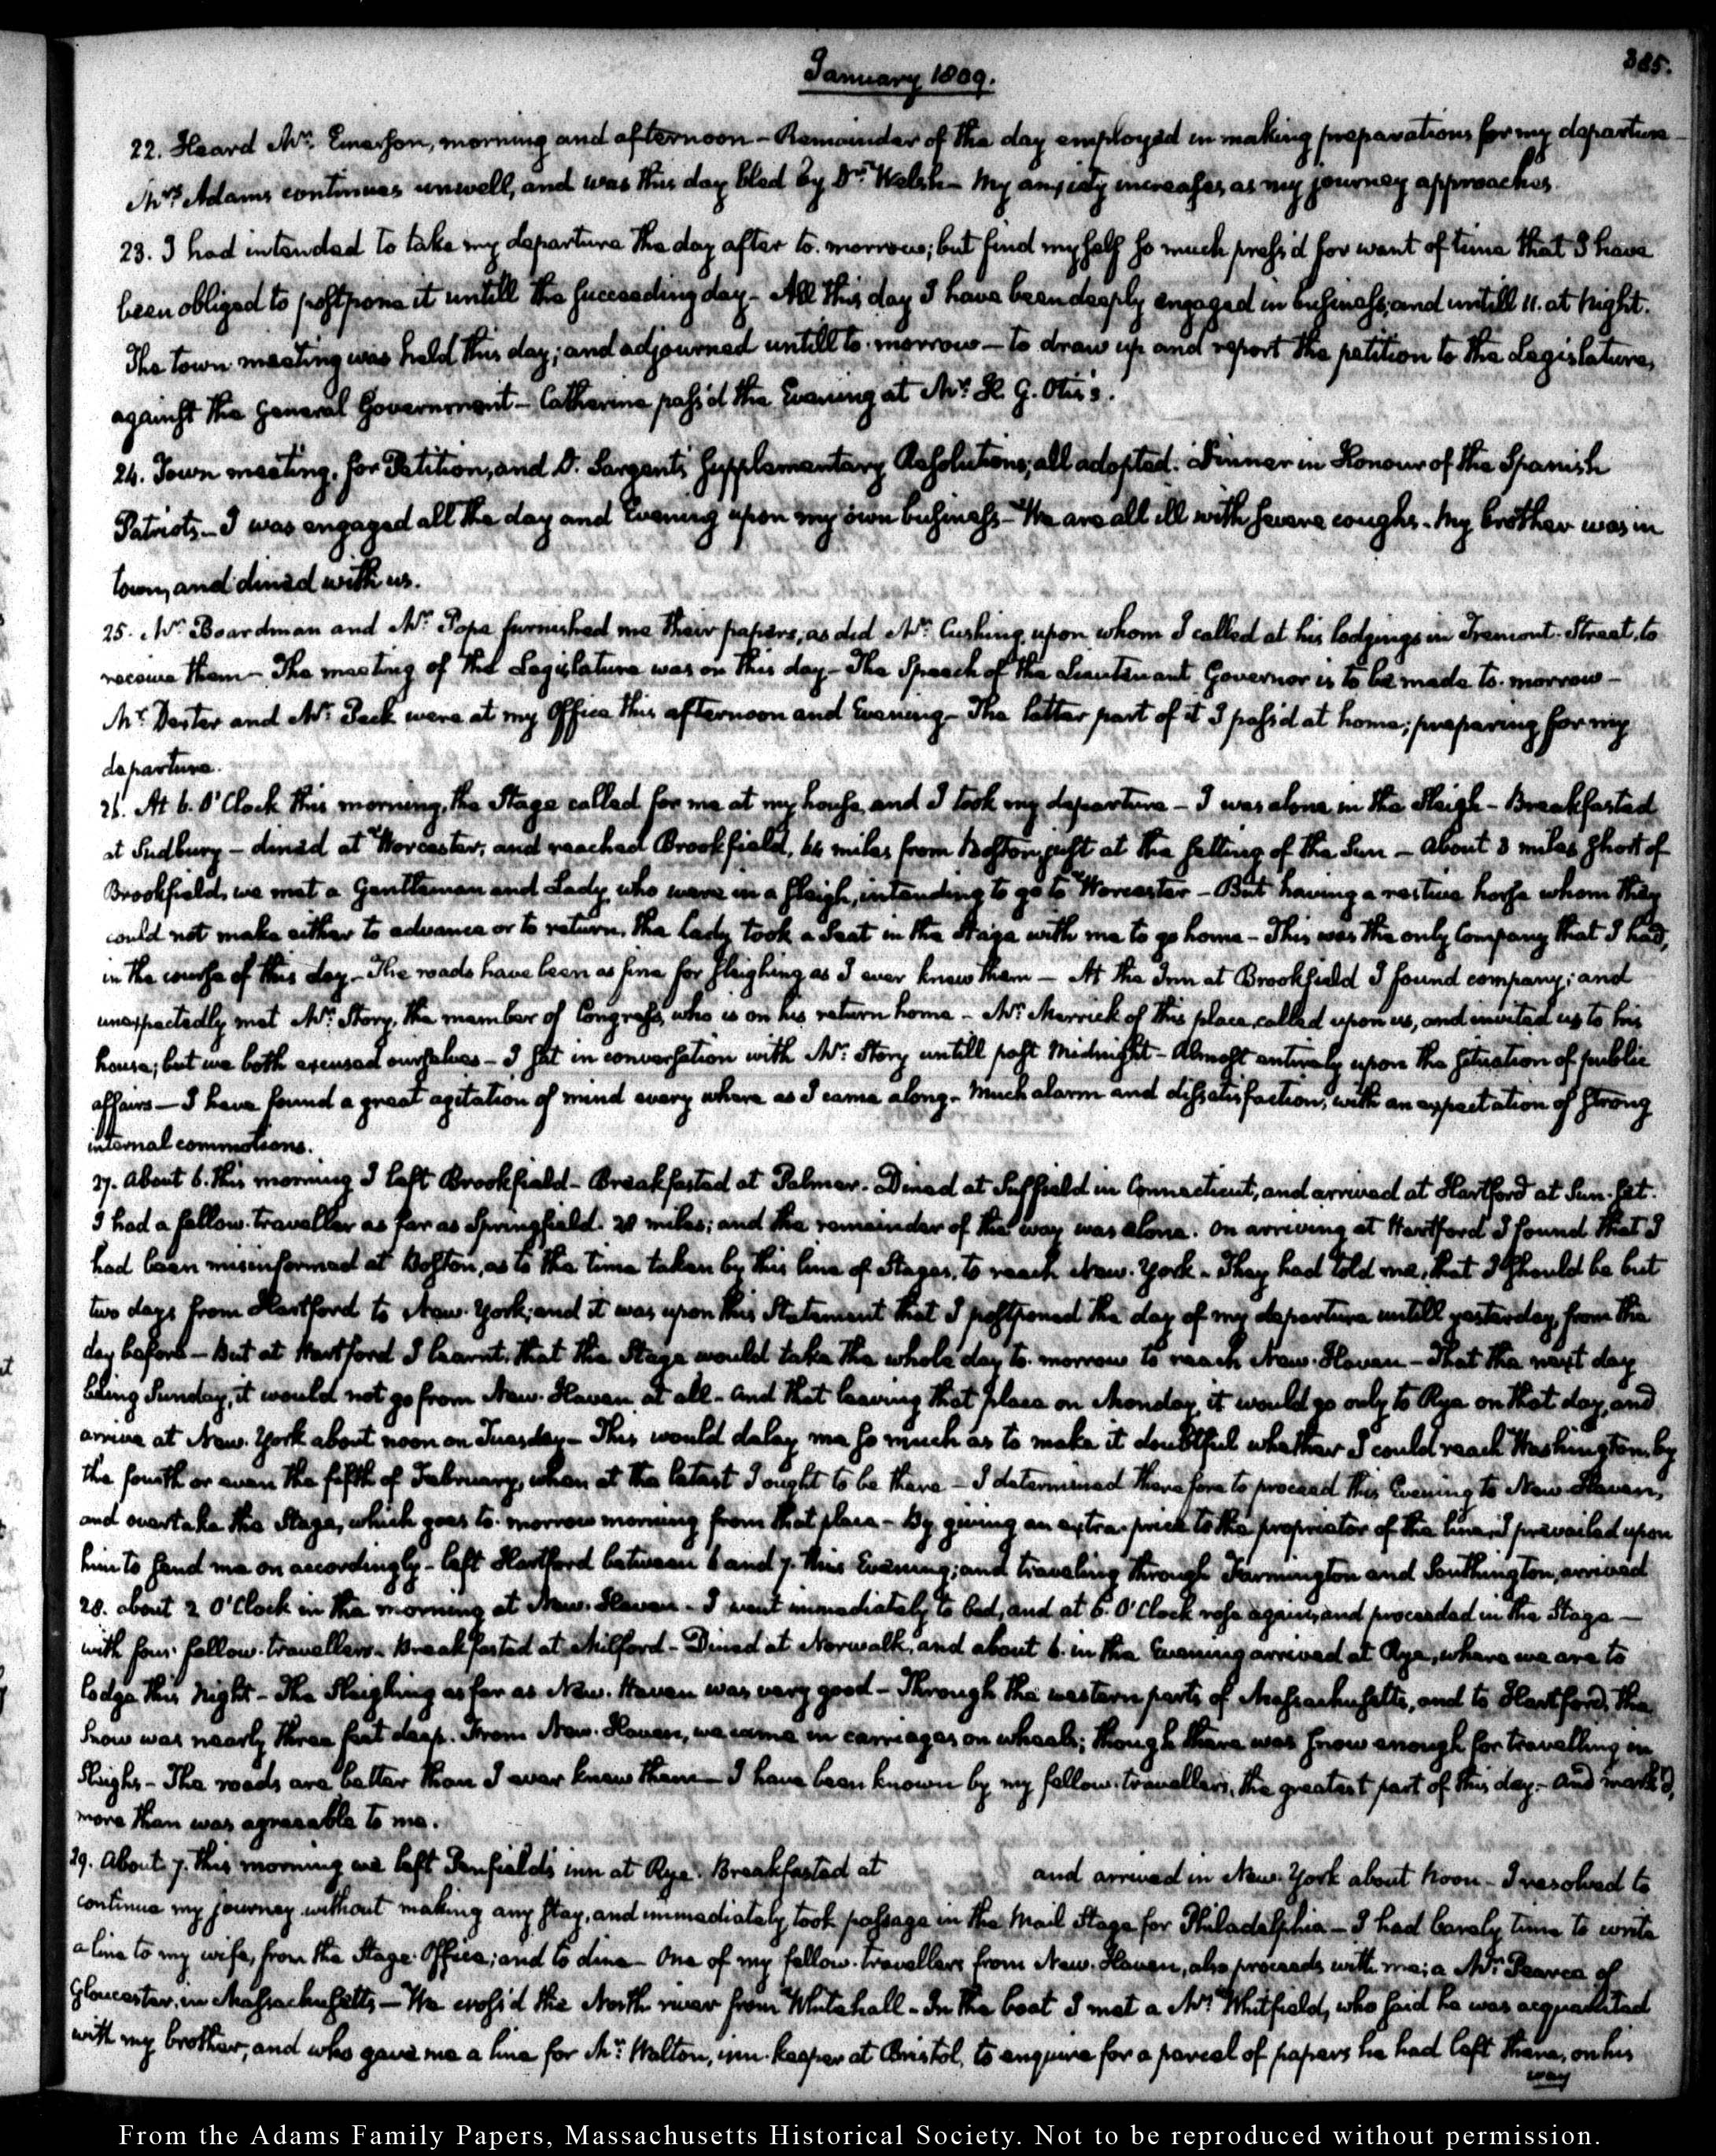 January 1809.
385.
22. Heard Mr. Emerson, morning and afternoon — Remainder of the day employed in making preparations for my departure —
Mrs. Adams continues unwell, and was this day bled by Dr. Welsh — My anxiety increases, as my journey approaches.
23. I had intended to take my departure the day after to-morrow; but find myself so much press'd for want of time that I have
been obliged to postpone it untill the succeeding day — All this day I have been deeply engaged in business, and untill 11. at Night.
The town-meeting was held this day; and adjourned untill to-morrow — to draw up and report the petition to the Legislature,
against the General Government — Catherine pass'd the Evening at Mr. H. G. Otis's.
24. Town meeting, for Petition, and D. Sargent's Supplementary Resolutions; all adopted. Dinner in Honour of the Spanish
Patriots — I was engaged all the day and Evening upon my own business — We are all ill with severe coughs. My brother was in
town, and dined with us.
25. Mr. Boardman and Mr. Pope furnished me their papers; as did Mr. Cushing, upon whom I called at his lodgings in Tremont-Street, to
receive them — The meeting of the Legislature was on this day — The Speech of the Lieutenant Governor is to be made to-morrow —
Mr. Dexter and Mr. Peck were at my Office this afternoon and Evening — The latter part of it I pass'd at home; preparing for my
departure.
26. At 6. O'Clock this morning, the Stage called for me at my house, and I took my departure — I was alone in the Sleigh — Breakfasted
at Sudbury — dined at Worcester, and reached Brookfield, 64 miles from Boston, just at the setting of the Sun — About 3 miles short of
Brookfield, we met a Gentleman and Lady, who were in a sleigh, intending to go to Worcester — But having a restive horse whom they
could not make either to advance or to return, the Lady took a Seat in the Stage with me to go home — This was the only Company that I had,
in the course of this day — The roads have been as fine for sleighing as I ever knew them — At the Inn at Brookfield I found company; and
unexpectedly met Mr. Story, the member of Congress, who is on his return home — Mr. Merrick of this place, called upon us, and invited us to his
house; but we both excused ourselves — I sat in conversation with Mr. Story untill past Midnight — Almost entirely upon the situation of public
affairs — I have found a great agitation of mind every where as I came along — Much alarm and dissatisfaction, with an expectation of strong
internal commotions.
27. About 6. this morning I left Brookfield — Breakfasted at Palmer — Dined at Suffield in Connecticut, and arrived at Hartford at Sun-set.
I had a fellow-traveller as far as Springfield. 28 miles; and the remainder of the way was alone. On arriving at Hartford I found that I
had been misinformed at Boston, as to the time taken by this line of Stages, to reach New-York — They had told me, that I should be but
two days from Hartford to New-York; and it was upon this Statement that I postponed the day of my departure untill yesterday, from the
day before — But at Hartford I learnt, that the Stage would take the whole day to-morrow to reach New-Haven — That the next day
being Sunday, it would not go from New-Haven at all — And that leaving that place on Monday, it would go only to Rye on that day, and
arrive at New-York about noon on Tuesday — This would delay me so much as to make it doubtful whether I could reach Washington by
the fourth or even the fifth of February, when at the latest I ought to be there — I determined therefore to proceed this Evening to New-Haven,
and overtake the Stage, which goes to-morrow morning from that place — By giving an extra-price to the proprietor of the line, I prevailed upon
him to send me on accordingly — left Hartford between 6 and 7. this Evening; and traveling through Farmington and Southington, arrived
28. about 2 O'Clock in the morning at New-Haven — I went immediately to bed, and at 6. O'Clock rose again, and proceeded in the Stage —
with four fellow-travellers — Breakfasted at Milford — Dined at Norwalk, and about 6. in the Evening arrived at Rye, where we are to
lodge this Night — The Sleighing as far as New-Haven was very good — Through the western parts of Massachusetts, and to Hartford, the
Snow was nearly three feet deep. From New-Haven, we came in carriages on wheels; though there was snow enough for travelling in
Sleighs — The roads are better than I ever knew them — I have been known by my fellow-travellers, the greatest part of this day — And mark'd,
more than was agreeable to me.
29. About 7. this morning we left Penfield's inn at Rye. Breakfasted at and arrived in New-York about Noon — I resolved to
continue my journey without making any stay, and immediately took passage in the Mail Stage for Philadelphia — I had barely time to write
a line to my wife, from the Stage-Office; and to dine — One of my fellow-travellers from New-Haven, also proceeds with me; a Mr. Pearce of
Gloucester, in Massachusetts — We cross'd the North river from Whitehall — In the boat I met a Mr. Whitfield, who said he was acquainted
with my brother, and who gave me a line for Mr. Walton, inn-keeper at Bristol, to enquire for a parcel of papers he had left there, on his
way
From the Adams Family Papers, Massachusetts Historical Society. Not to be reproduced without permission.